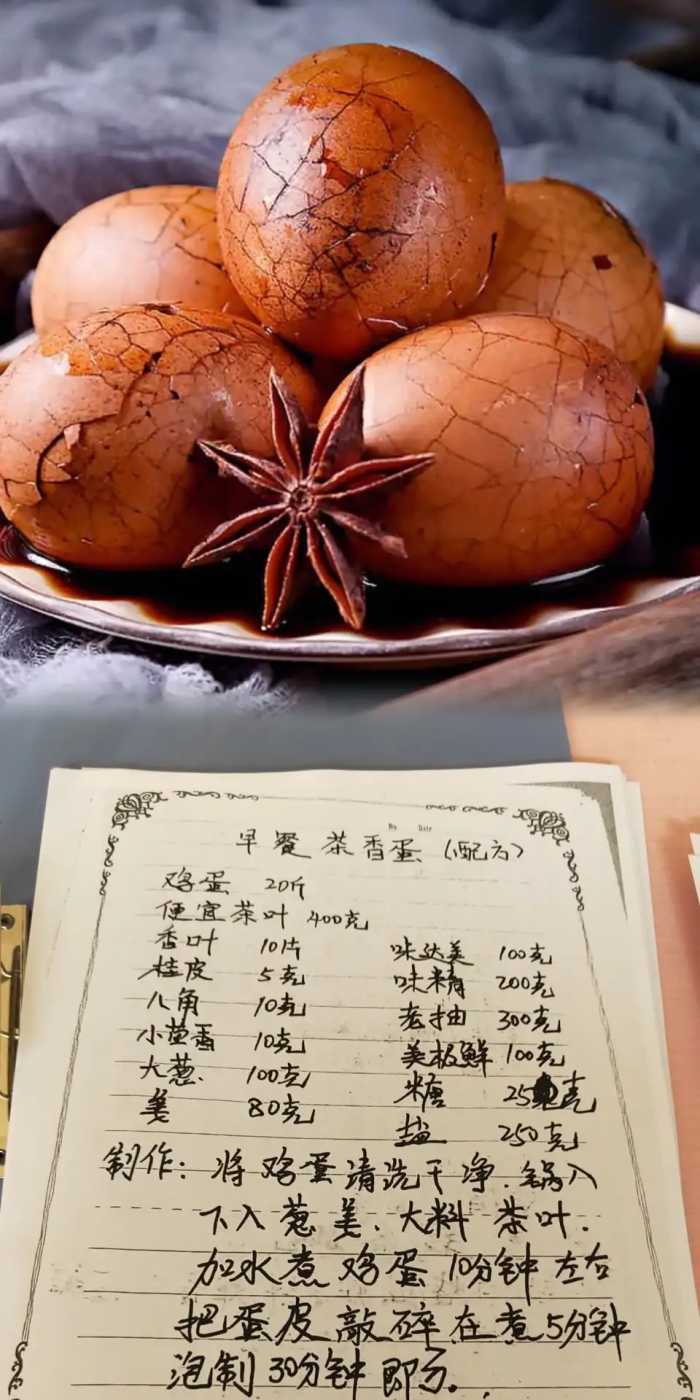 No Date
早餐茶香蛋(配方)
鸡蛋 20斤
便宜茶叶 400克
香叶 10片 味达美 100克
桂皮 5克 味精 200克
八角 10克 老抽 300克
小茴香 10克 美极鲜 100克
大葱. 100克 糖 25克
姜 80克 盐 250克
制作: 将鸡蛋清洗干净.锅入
下入葱姜.大料茶叶.
加水煮鸡蛋10分钟左右
把蛋皮敲碎在煮5分钟
泡制30分钟即可.